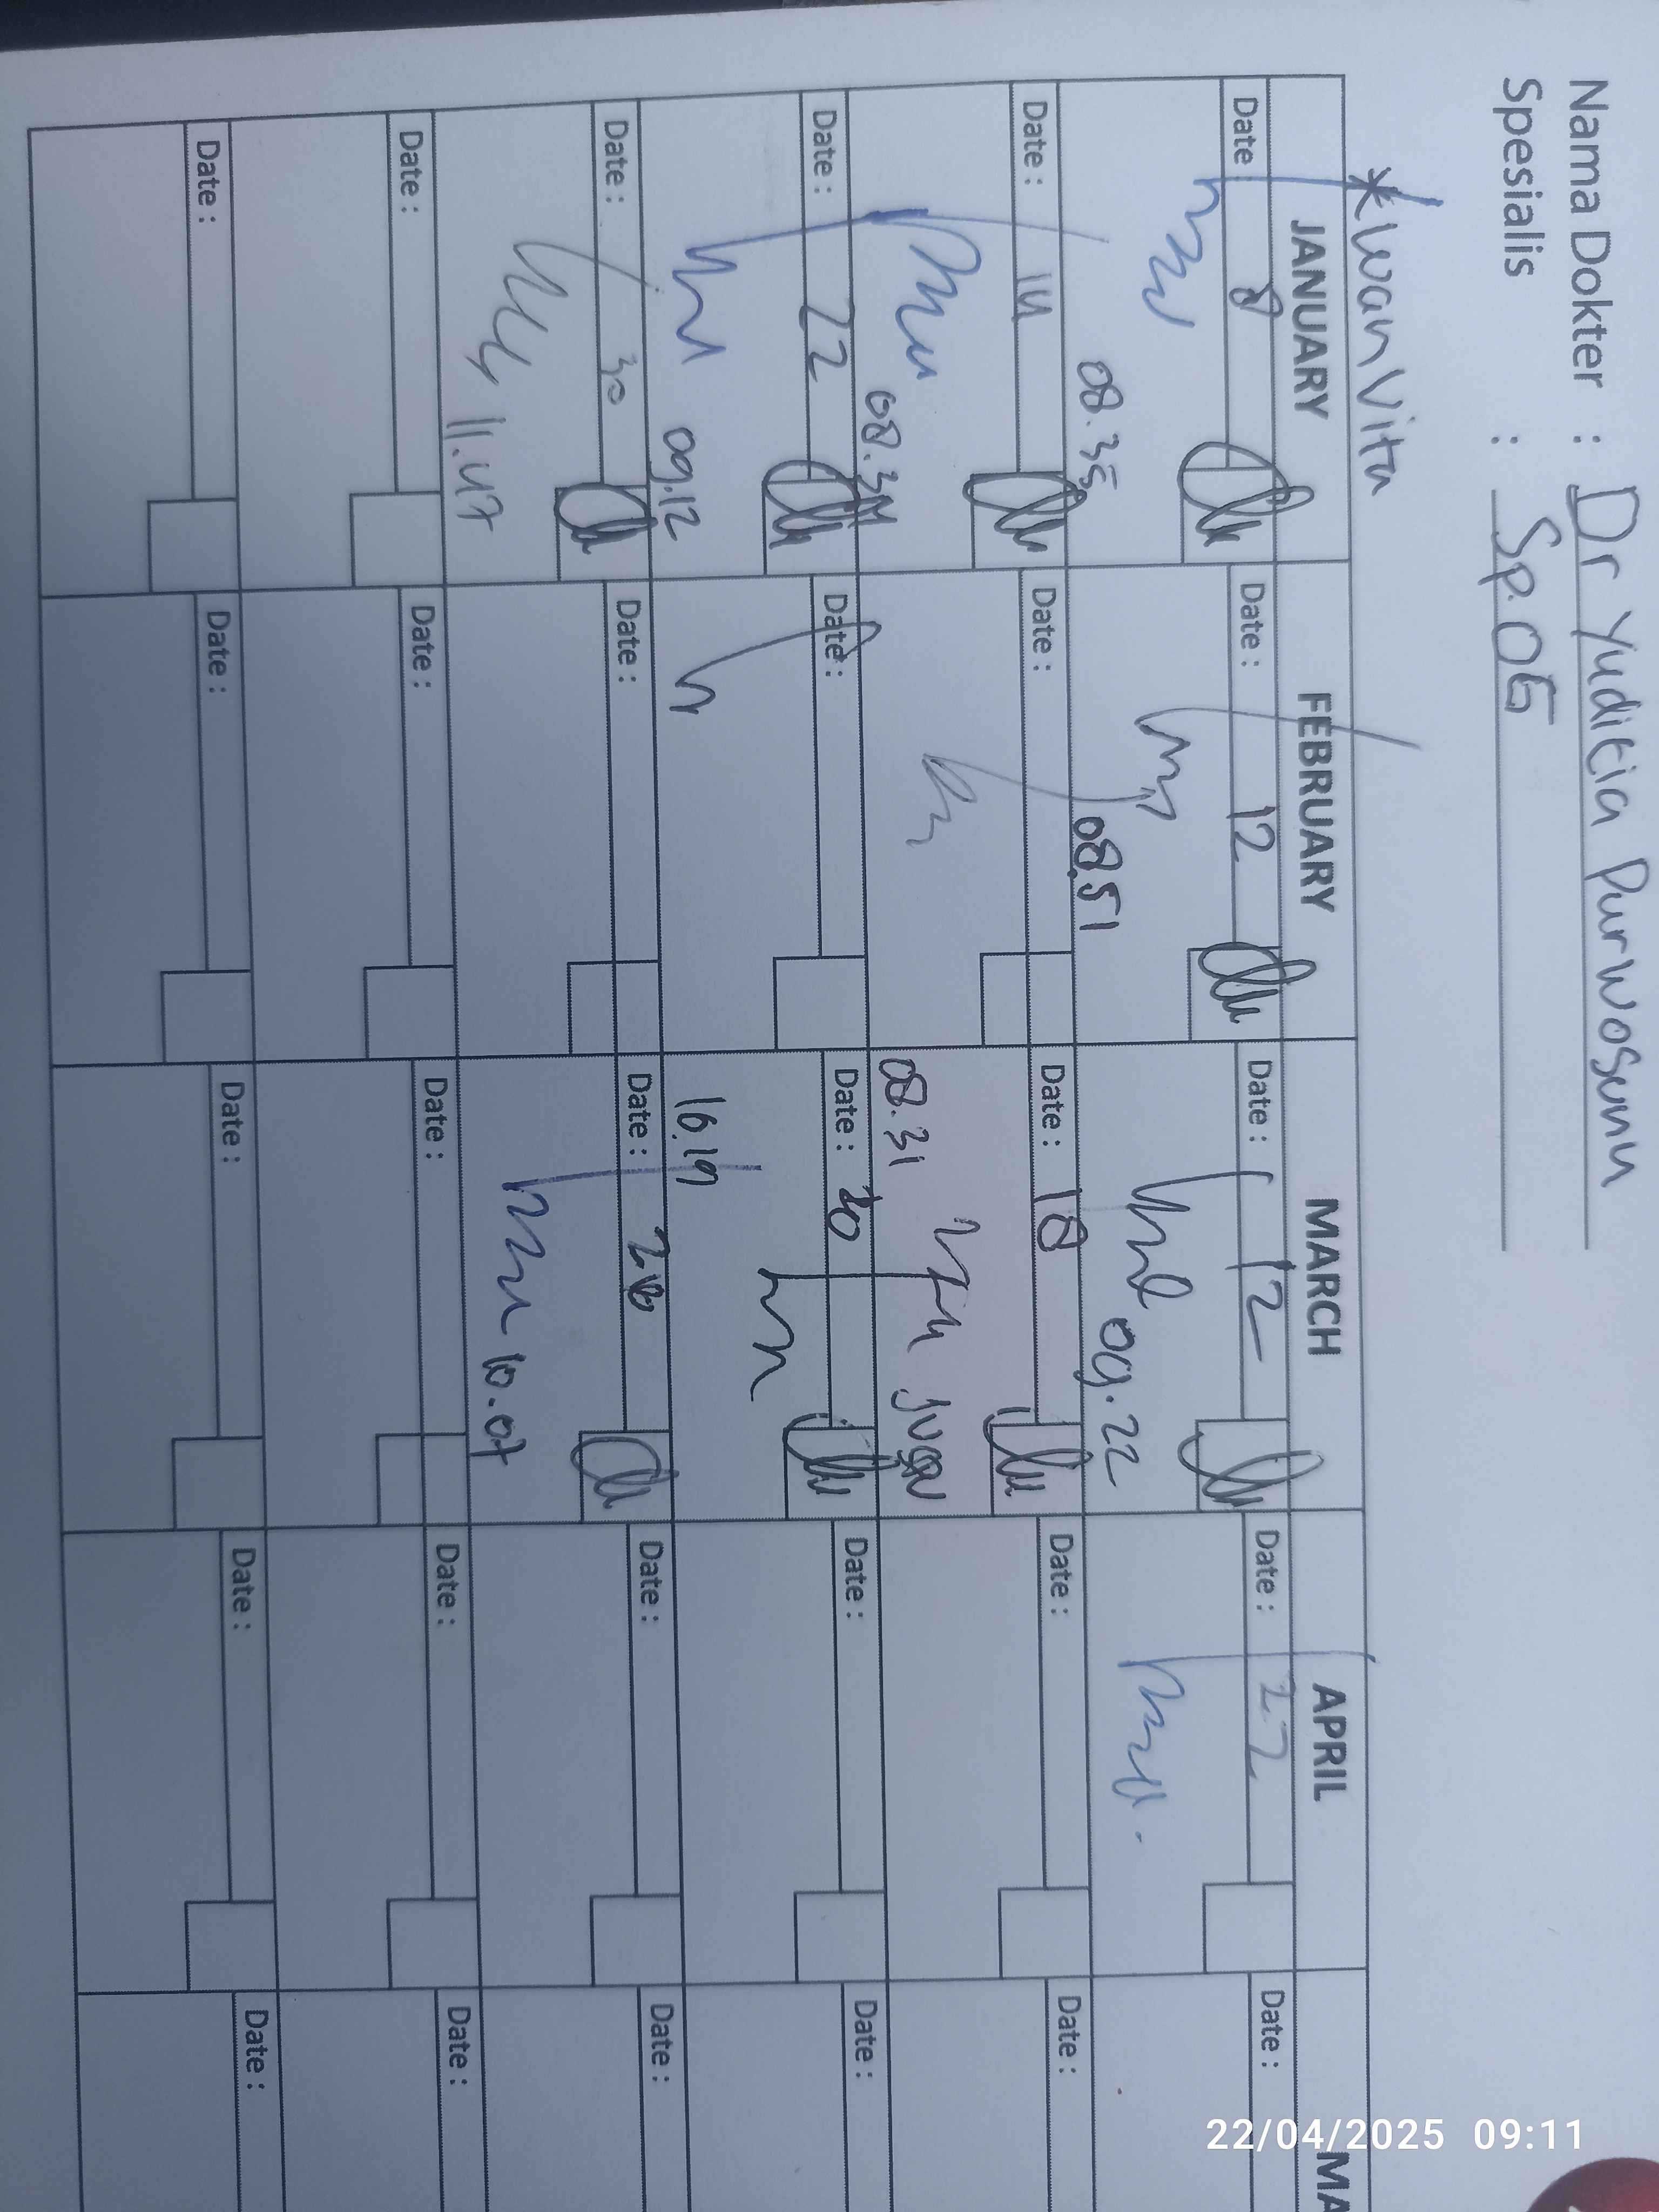 Nama Dokter : Dr Yuditia Purwosunu
Spesialis : Sp.OG
*Kwan Vita
JANUARY FEBRUARY MARCH APRIL
Date : 8 Date : 12 Date : 12 Date : 22 Date :
08.35 08.51 09.22
Date : 14 Date : Date : 18 Date : Date :
08.34 08.31
Date : 22 Date : Date : 20 Date : Date :
09.12 16.19
Date : 30 Date : Date : Date : Date :
11.47 10.07
Date : Date : Date : Date : Date :
Date : Date : Date : Date : Date :
22/04/2025 09:11